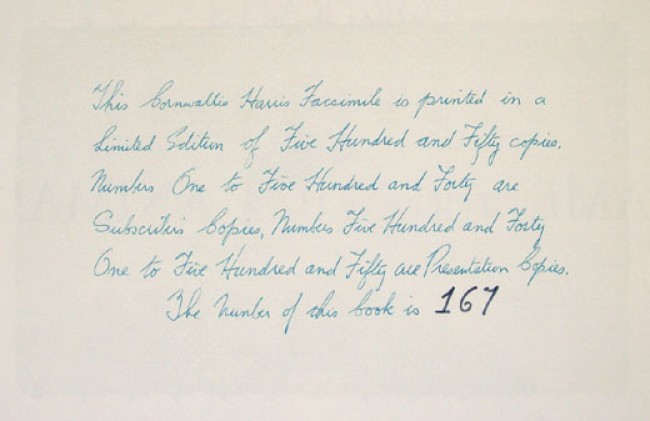 This Cornwallis Harris Facsimile is printed in a
Limited Edition of Five Hundred and Fifty copies.
Numbers One to Five Hundred and Forty are
Subscribers Copies, Numbers Five Hundred and Forty
One to Five Hundred and Fifty are Presentation Copies.
The number of this book is 167